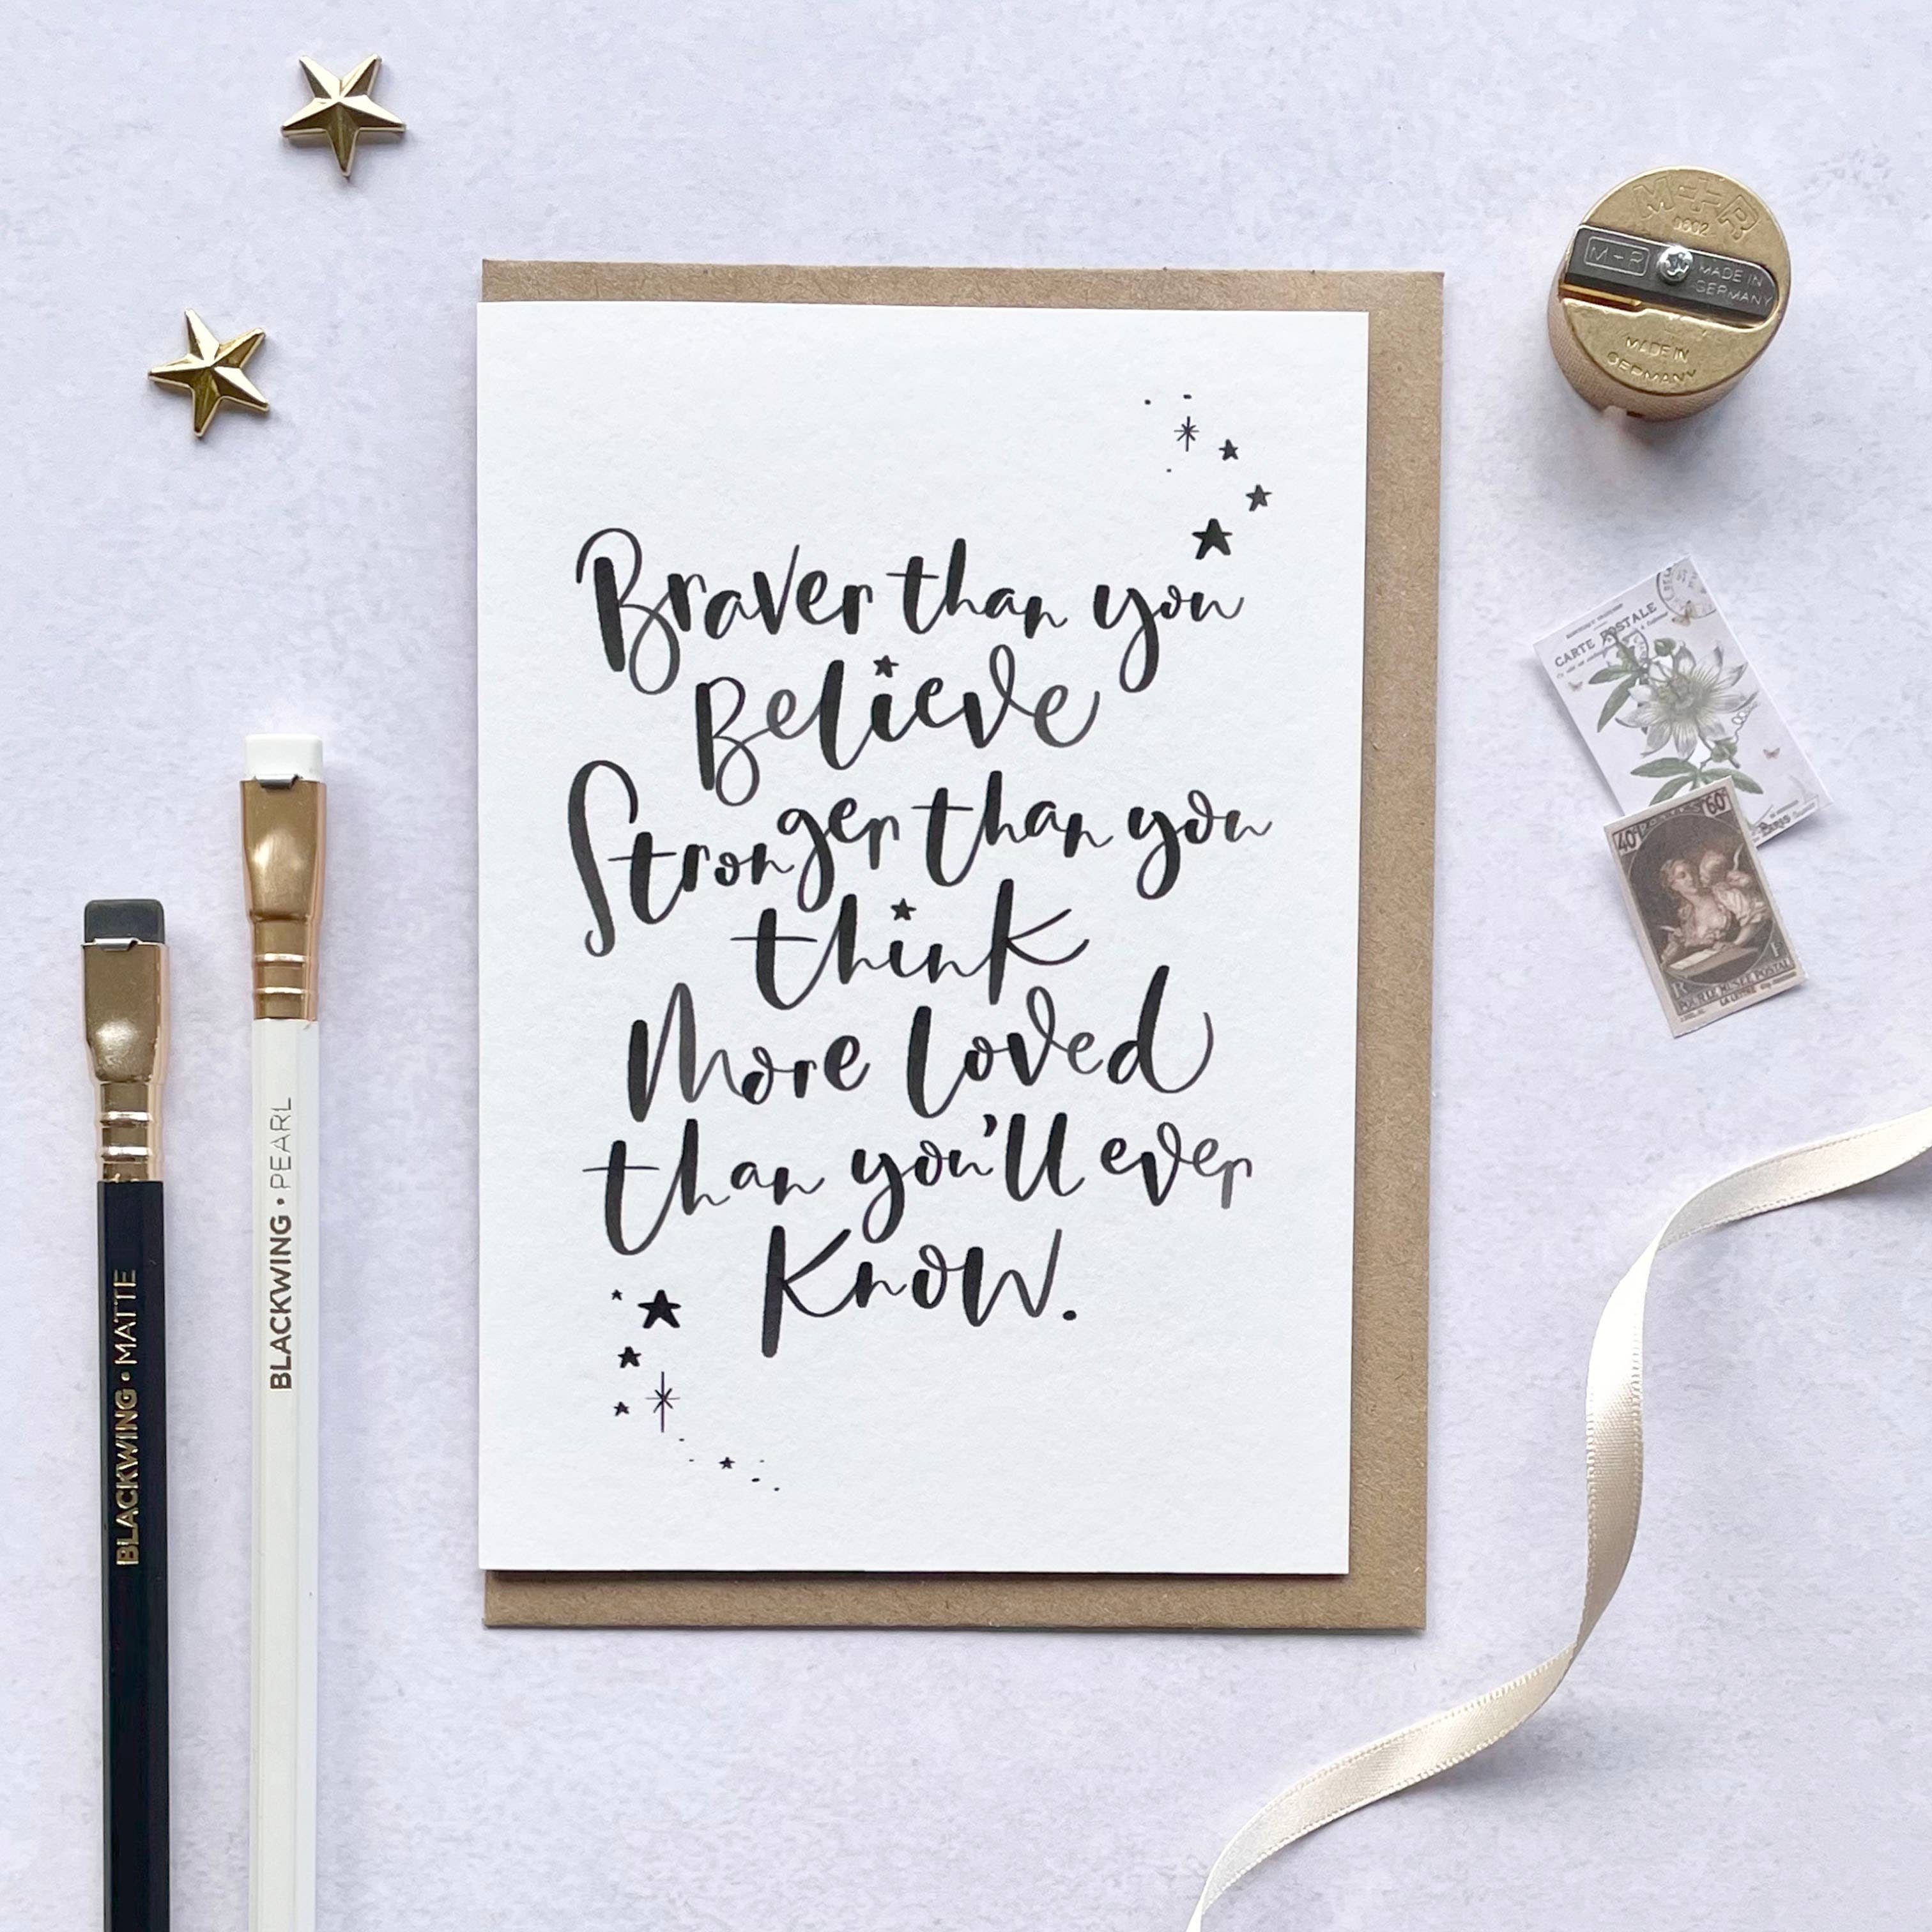 Braver than you
Believe
Stronger than you
think
More loved
than you'll ever
Know.
BLACKWING • MATTE
BLACKWING • PEARL
M+R
0602
M+R
MADE IN
GERMANY
MADE IN
GERMANY
CARTE POSTALE
40c
60c
POUR LE MUSÉE POSTAL
LA LETTRE